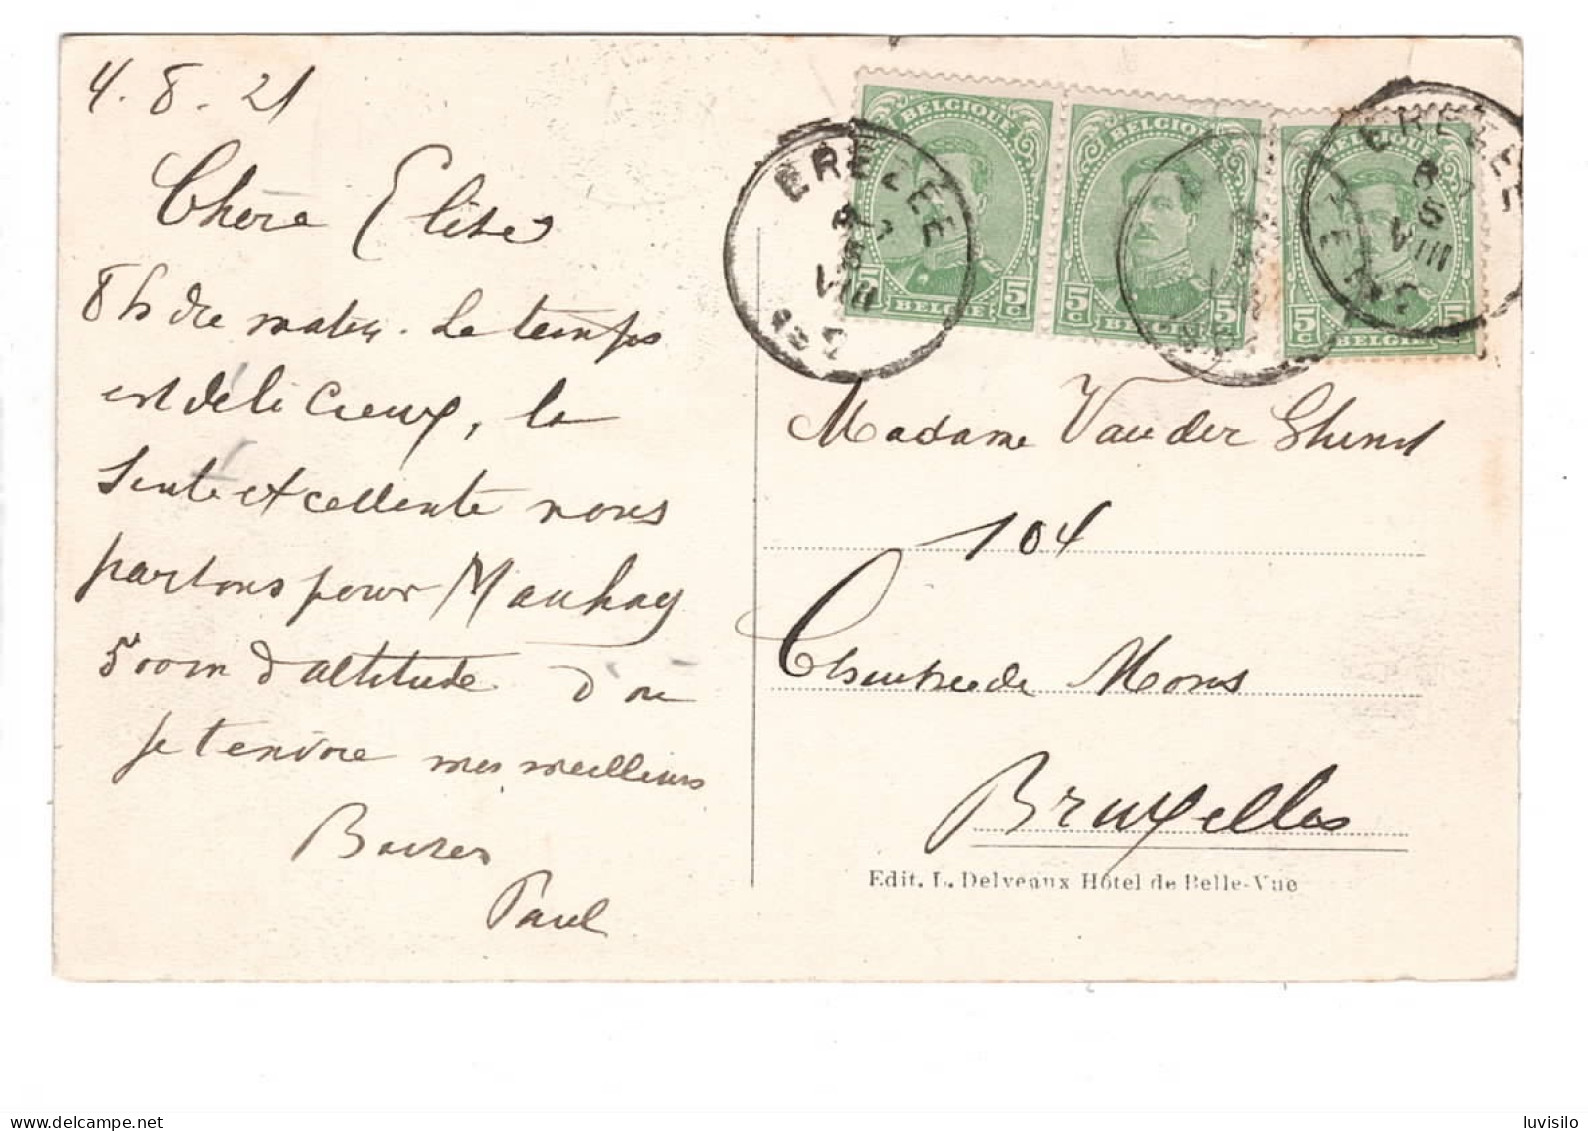 4. 8. 21
Chère Elise
8 h du matin. Le temps
est délicieux, la
Santé excellente nous
partons pour Manhay
500 m d'altitude d'où
je t'envoie mes meilleurs
Baisers
Paul
BELGIQUE
5 c 5 c
BELGIE
BELGIQUE
5 c 5
BELGIE
BELGIQUE
5 c 5 c
BELGIE
EREZEE
8-7
5
VIII
EREZEE
8-7
5
VIII
Madame Van der Ghinst
104
Chaussée de Mons
Bruxelles
Edit. L. Delveaux Hôtel de Belle-Vue
delcampe.net
luvisilo